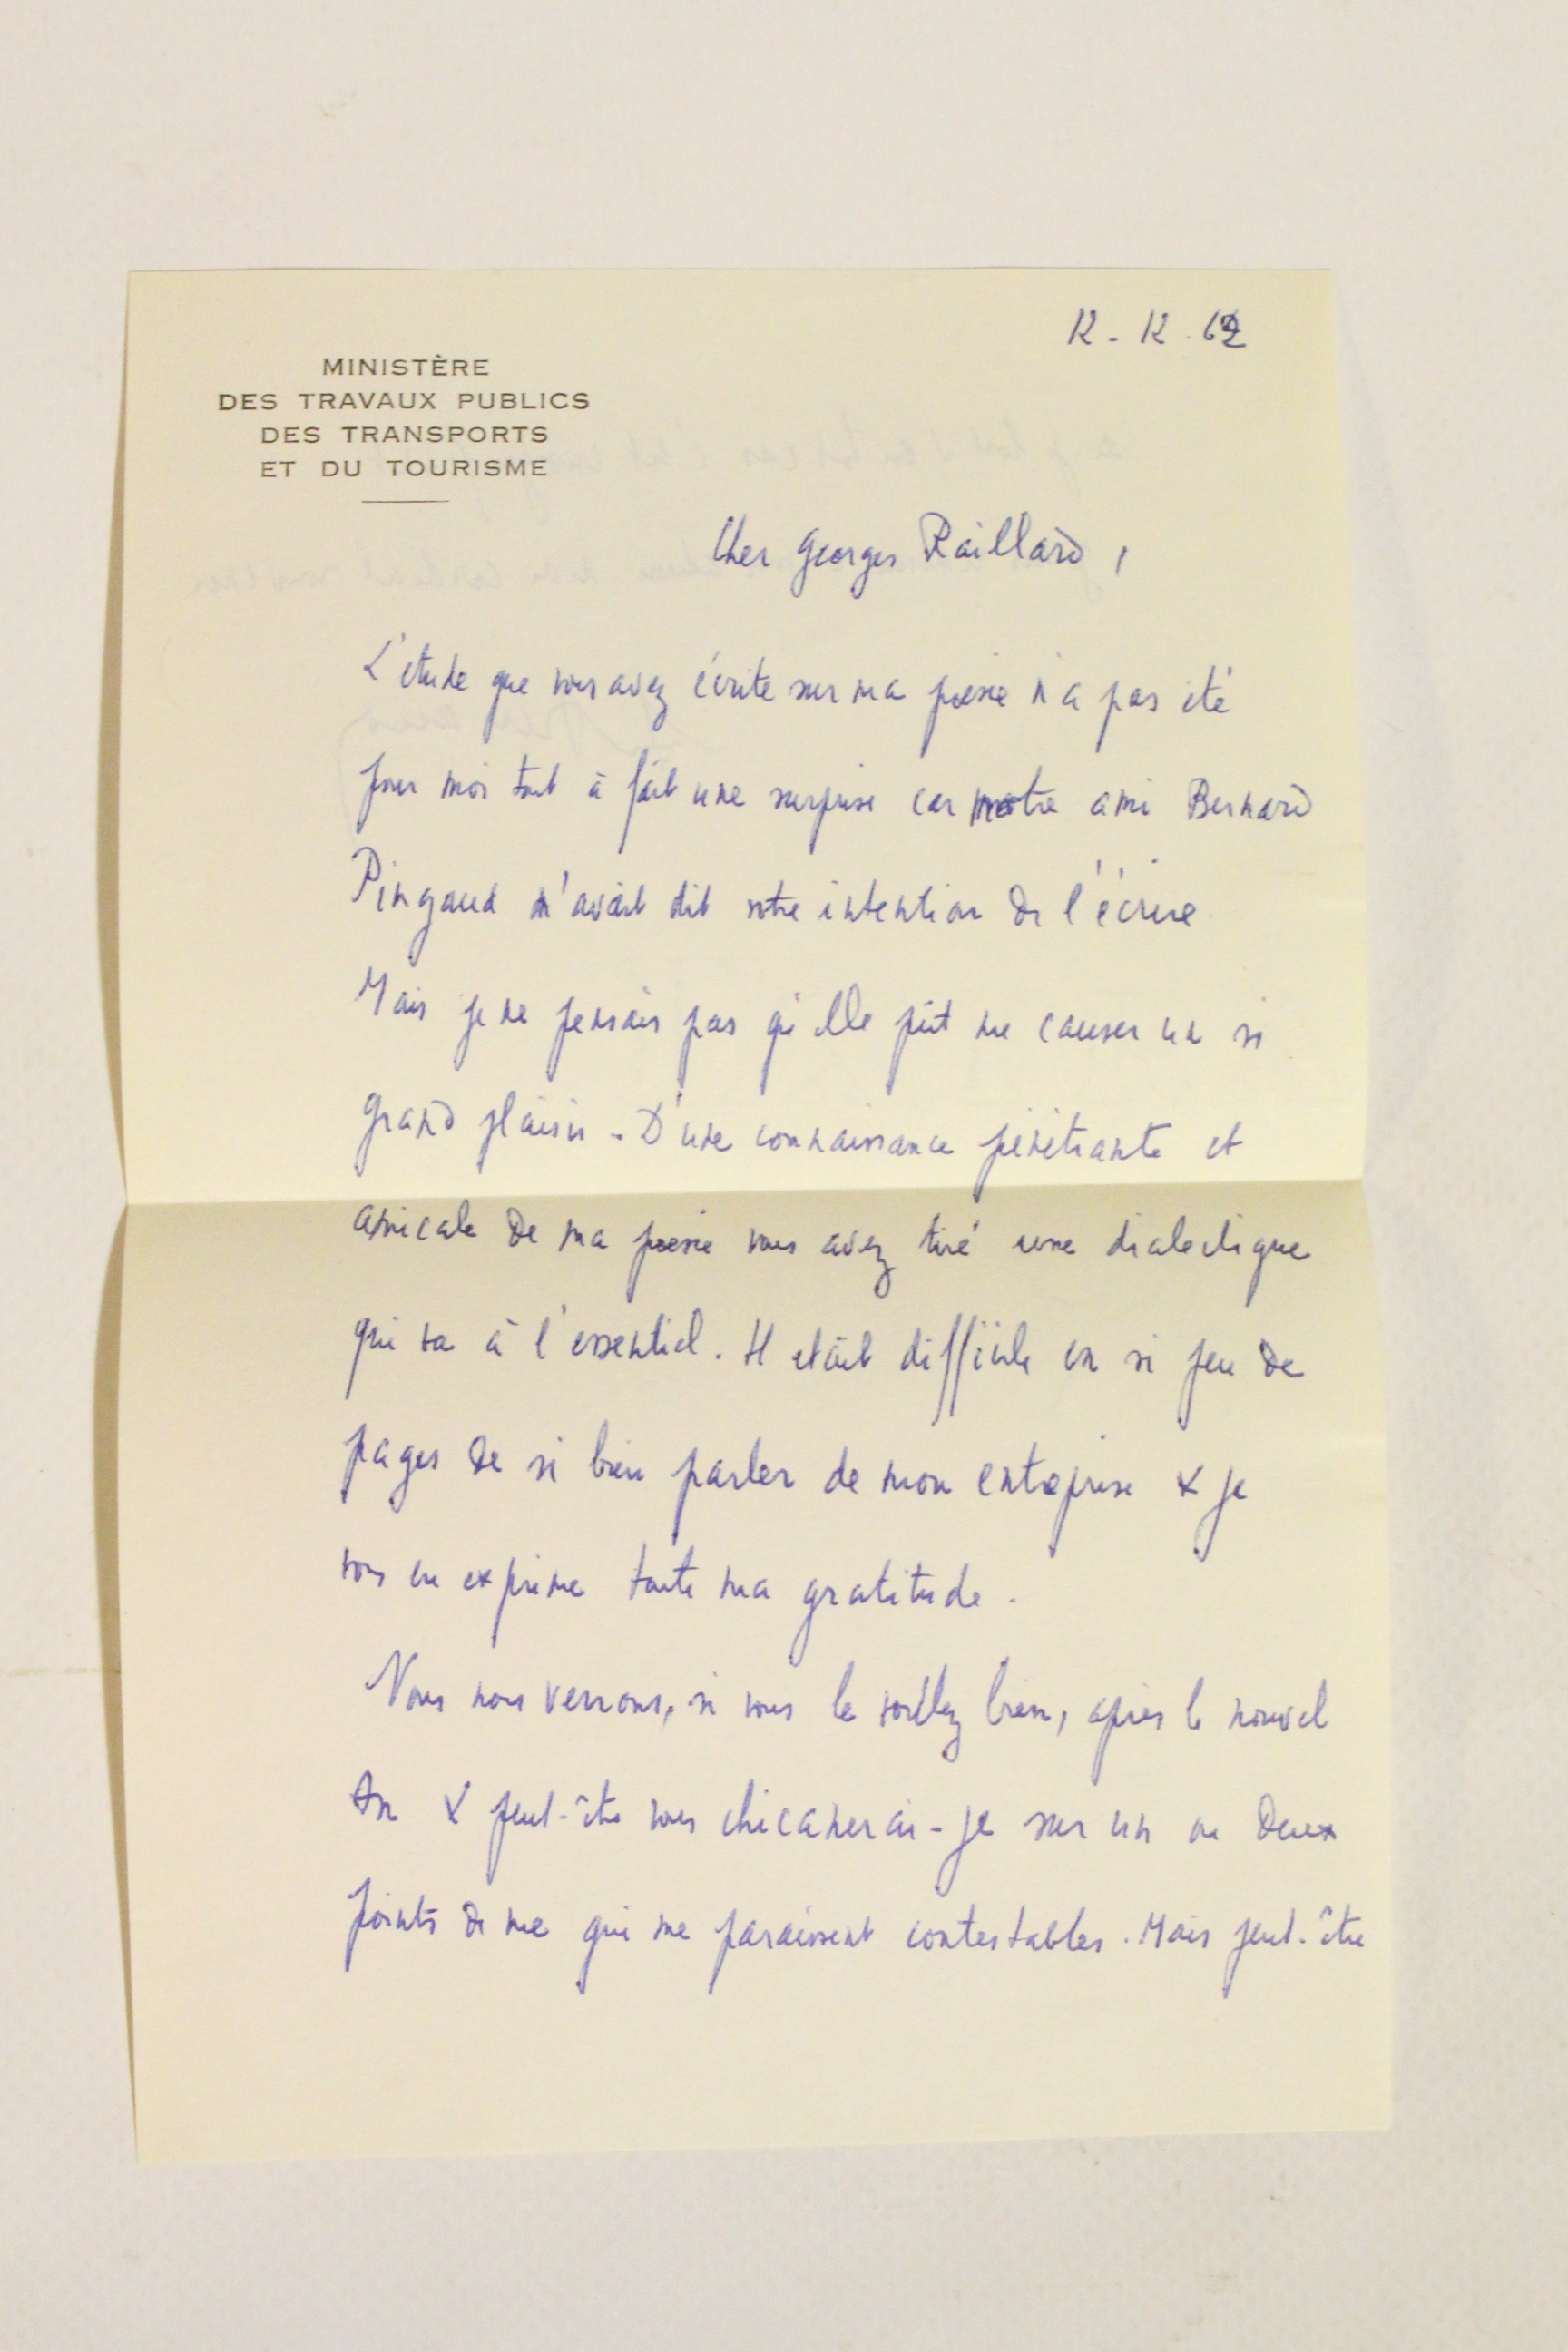 12 - 12 . 62
MINISTÈRE
DES TRAVAUX PUBLICS
DES TRANSPORTS
ET DU TOURISME
Cher Georges Raillard,
L'étude que vous avez écrite sur ma poésie n'a pas été
pour moi tout à fait une surprise car notre ami Bernard
Pingaud m'avait dit votre intention de l'écrire
Mais je ne pensais pas qu'elle pût me causer un si
grand plaisir - D'une connaissance pénétrante et
amicale de ma poésie vous avez tiré une dialectique
qui va à l'essentiel. Il était difficile en si peu de
pages de si bien parler de mon entreprise & je
vous en exprime toute ma gratitude.
Nous nous verrons, si vous le voulez bien, après le nouvel
An & peut-être vous chicanerai-je sur un ou deux
points de vue qui me paraissent contestables. Mais peut-être